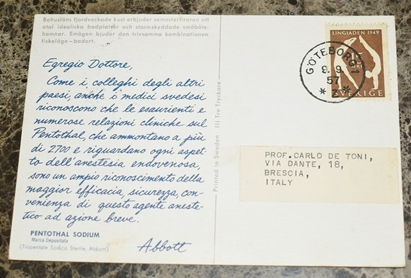 Bohusläns fjordvackra kust erbjuder semesterfiraren ett
otal idealiska badplatser och stormskyddade småbåts-
hamnar. Smögen bjuder den trivsamma kombinationen
fiskeläge - badort.
Egregio Dottore,
Come i colleghi degli altri
paesi, anche i medici svedesi
riconoscono che le esaurienti e
numerose relazioni cliniche sul
Pentothal, che ammontano a più
di 2700 e riguardano ogni aspet-
to dell'anestesia endovenosa,
sono un ampio riconoscimento della
maggior efficacia, sicurezza, con-
venienza di questo agente aneste-
tico ad azione breve.
Abbott
PENTOTHAL SODIUM
Marca Depositata
(Tiopentale Sodico Sterile, Abbott)
Printed in Sweden
LINGIADEN 1949
SVERIGE
GÖTEBORG
57
PROF. CARLO DE TONI,
VIA DANTE, 18,
BRESCIA,
ITALY